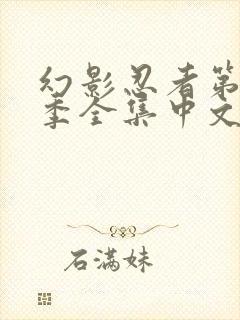 幻影忍者第
季全集中文
石满妹